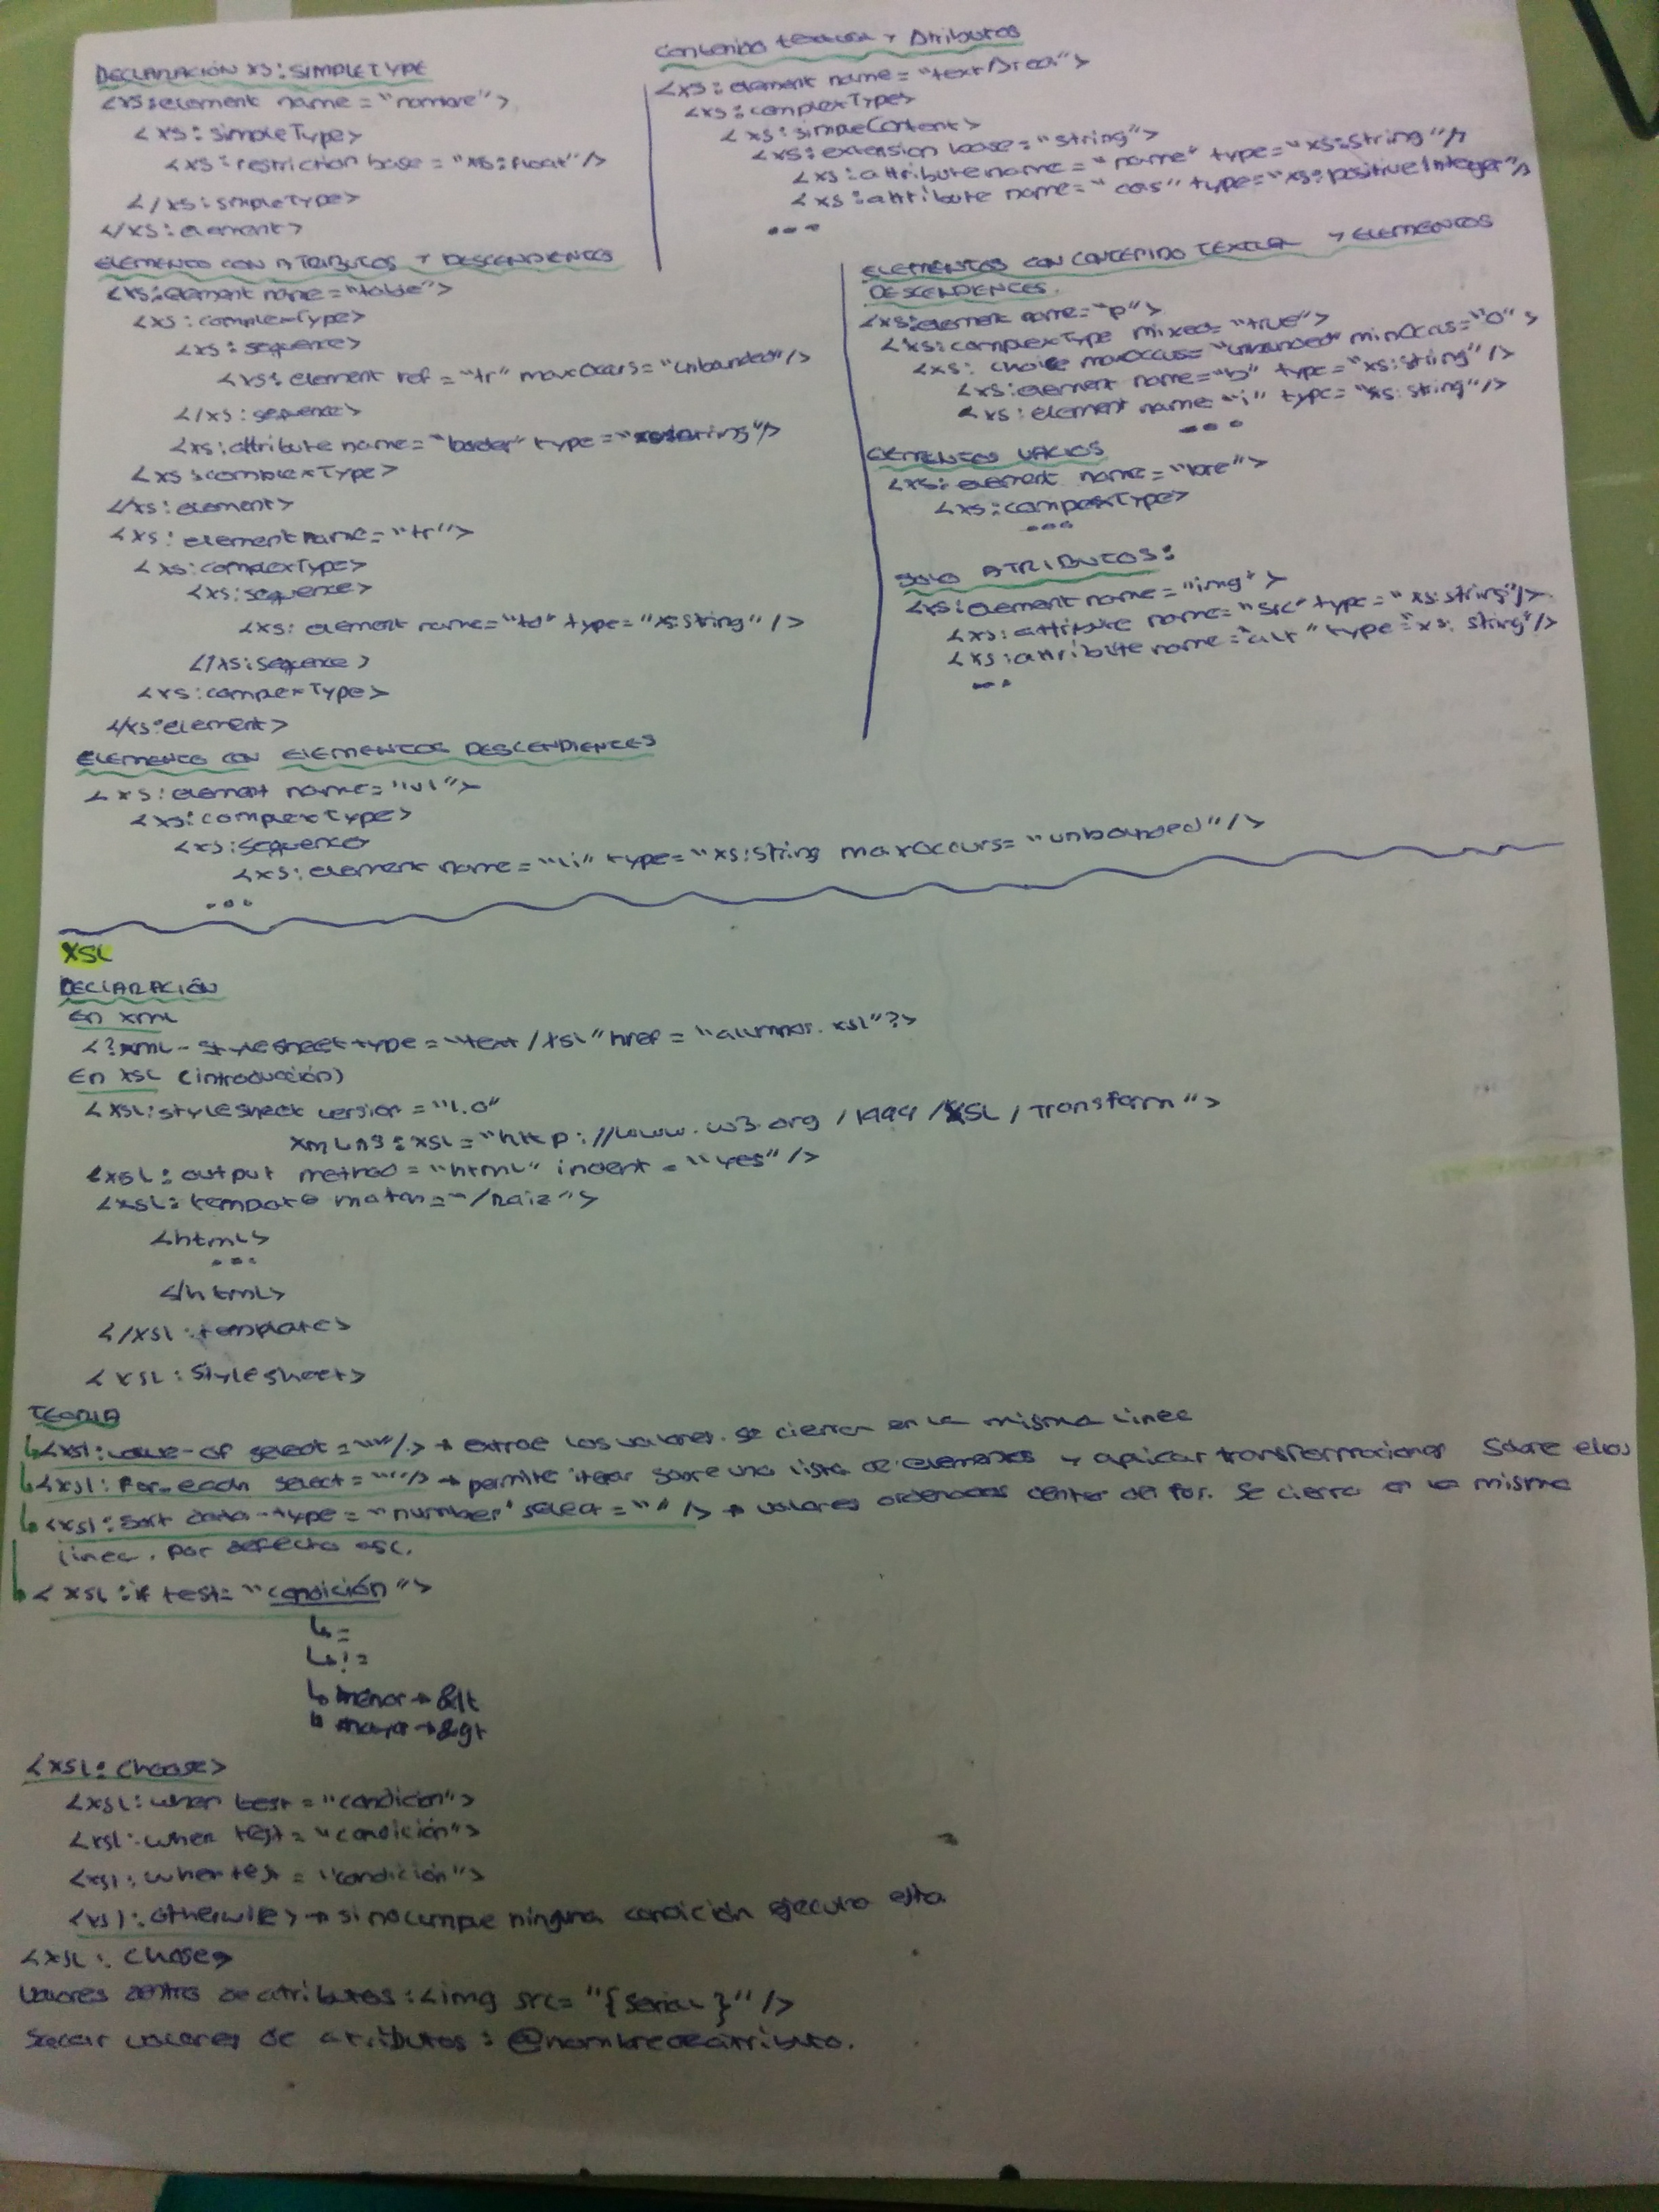 DECLARACIÓN XS:SIMPLETYPE
<xs:element name="nombre">
<xs:simpleType>
<xs:restriction base="xs:float"/>
</xs:simpleType>
</xs:element>
ELEMENTO CON ATRIBUTOS Y DESCENDIENTES
<xs:element name="table">
<xs:complexType>
<xs:sequence>
<xs:element ref="tr" maxOccurs="unbounded"/>
</xs:sequence>
<xs:attribute name="border" type="xs:string"/>
<xs:complexType>
</xs:element>
<xs:element name="tr">
<xs:complexType>
<xs:sequence>
<xs:element name="td" type="xs:string"/>
</xs:sequence>
<xs:complexType>
</xs:element>
ELEMENTO CON ELEMENTOS DESCENDIENTES
<xs:element name="ul">
<xs:complexType>
<xs:sequence>
<xs:element name="li" type="xs:string maxOccurs="unbounded"/>
...
Contenido textual y Atributos
<xs:element name="textArea">
<xs:complexType>
<xs:simpleContent>
<xs:extension base="string">
<xs:attribute name="name" type="xs:string"/>
<xs:attribute name="cols" type="xs:positiveInteger"/>
...
ELEMENTOS CON CONTENIDO TEXTUAL Y ELEMENTOS
DESCENDENTES.
<xs:element name="p">
<xs:complexType mixed="true">
<xs:choice maxOccurs="unbounded" minOccurs="0">
<xs:element name="b" type="xs:string"/>
<xs:element name="i" type="xs:string"/>
...
ELEMENTOS VACIOS
<xs:element name="bre">
<xs:complexType>
...
SOLO ATRIBUTOS:
<xs:element name="img">
<xs:attribute name="src" type="xs:string"/>
<xs:attribute name="alt" type="xs:string"/>
...
XSL
DECLARACIÓN
En xml
<?xml-stylesheet type="text/xsl" href="alumnos.xsl"?>
En XSL (introducción)
<xsl:stylesheet version="1.0"
xmlns:xsl="http://www.w3.org/1999/XSL/Transform">
<xsl:output method="html" indent="yes"/>
<xsl:template match="/raiz">
<html>
...
</html>
</xsl:template>
<xsl:stylesheet>
TEORIA
<xsl:value-of select=""/> → extrae los valores. Se cierran en la misma linea
<xsl:for-each select=""/> → permite iterar sobre una lista de elementos y aplicar transformaciones sobre ellos
<xsl:sort data-type="number" select=""/> → valores ordenados dentro del for. Se cierra en la misma
linea. Por defecto asc.
<xsl:if test="condición">
↳ =
↳ !=
↳ menor → &lt
↳ mayor → &gt
<xsl:choose>
<xsl:when test="condicion">
<xsl:when test="condición">
<xsl:when test="condición">
<xsl:otherwise> → si no cumple ninguna condición ejecuta esta
<xsl:choose>
Valores dentro de atributos: <img src="{serial}"/>
Sacar valores de atributos: @nombredeatributo.